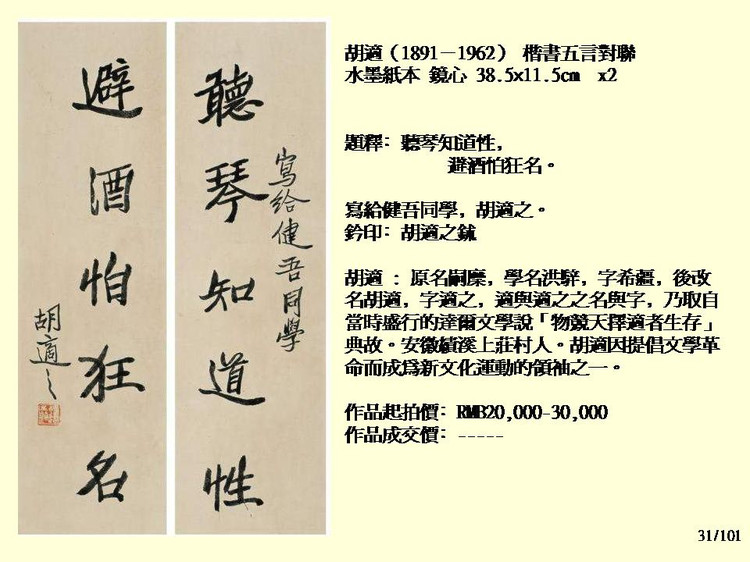 聽琴知道性
寫給健吾同學
避酒怕狂名
胡適之
胡適（1891－1962） 楷書五言對聯
水墨紙本 鏡心 38.5×11.5cm x2
題釋：聽琴知道性，
避酒怕狂名。
寫給健吾同學，胡適之。
鈐印：胡適之鉥
胡適 ：原名嗣穈，學名洪騂，字希疆，後改
名胡適，字適之，適與適之之名與字，乃取自
當時盛行的達爾文學說「物競天擇適者生存」
典故。安徽績溪上莊村人。胡適因提倡文學革
命而成為新文化運動的領袖之一。
作品起拍價：RMB20,000-30,000
作品成交價：-----
31/101